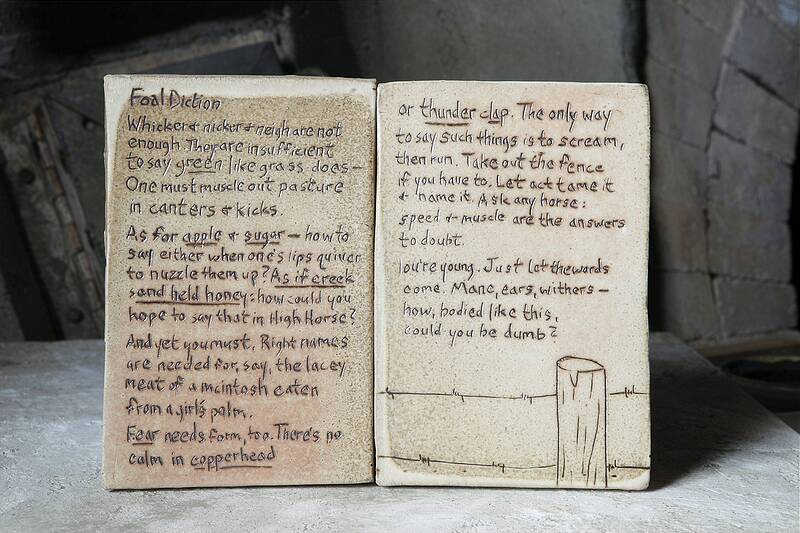 Foal Diction
Whicker & nicker & neigh are not
enough. They are insufficient
to say green like grass does —
One must muscle out pasture
in canters & kicks.
As for apple & sugar — how to
say either when one's lips quiver
to nuzzle them up? As if creek
sand held honey: how could you
hope to say that in High Horse?
And yet you must. Right names
are needed for, say, the lacey
meat of a mcintosh eaten
from a girl's palm.
Fear needs form, too. There's no
calm in copperhead
or thunder clap. The only way
to say such things is to scream,
then run. Take out the fence
if you have to. Let act tame it
& name it. Ask any horse:
speed & muscle are the answers
to doubt.
You're young. Just let the words
come. Mane, ears, withers —
how, bodied like this,
could you be dumb?